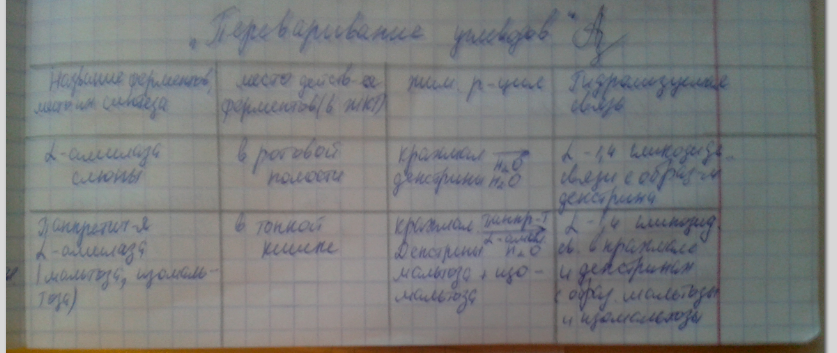 „Переваривание углеводов"
Название ферментов,
место их синтеза
место действ-ия
ферментов (в ЖКТ)
хим. р-ции
Гидролизуемые
связи
α-амилаза
слюны
в ротовой
полости
крахмал H₂O
декстрины H₂O
α-1,4 гликозидн.
связи с образ-м
декстрина
Панкреатич-я
α-амилаза
(мальтоза, изомаль-
тоза)
в тонкой
кишке
крахмал панкр-я
α-амил.
Декстрины H₂O
мальтоза + изо-
мальтоза
α-1,4 гликозид.
св. в крахмале
и декстринах
с образ. мальтозы
и изомальтозы